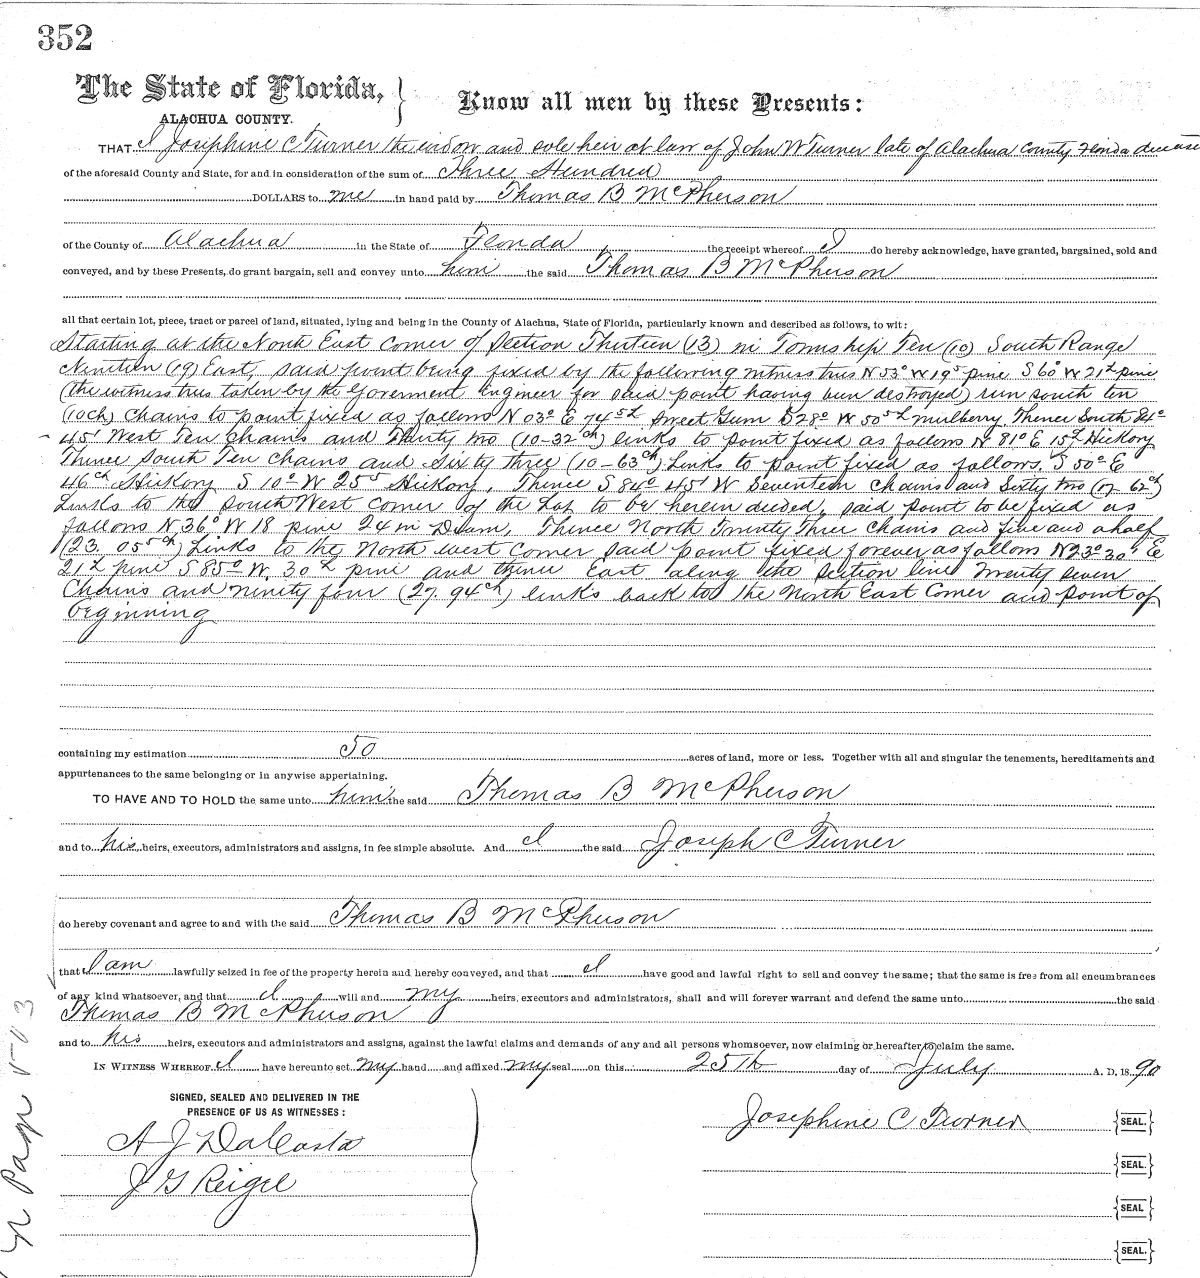 352
The State of Florida,
Know all men by these Presents:
ALACHUA COUNTY.
THAT I Josephine C Turner the widow and sole heir at law of John W Turner late of Alachua County Florida deceased
of the aforesaid County and State, for and in consideration of the sum of Three Hundred
DOLLARS to me in hand paid by Thomas B McPherson
of the County of Alachua in the State of Florida, the receipt whereof I do hereby acknowledge, have granted, bargained, sold and
conveyed, and by these Presents, do grant bargain, sell and convey unto him the said Thomas B McPherson
all that certain lot, piece, tract or parcel of land, situated, lying and being in the County of Alachua, State of Florida, particularly known and described as follows, to wit:
Starting at the North East Corner of Section Thirteen (13) in Township Ten (10) South Range
Nineteen (19) East, said point being fixed by the following witness trees N 53° W 19⁵ pine S 60° W 21² pine
(the witness trees taken by the Goverment Engineer for said point having been destroyed) run south ten
(10 Ch) Chains to point fixed as follows N 03° E 74⁵ᴸ Sweet Gum S 28° W 50⁵ᴸ mulberry. Thence South 81°
45' West Ten Chains and Thirty two (10-32 ch) links to point fixed as follows N 81° E 15ᴸ Hickory
Thence South Ten Chains and Sixty three (10-63 ch) Links to point fixed as follows. S 50° E
46 ch Hickory S 10° W 25⁵ Hickory, Thence S 84° 45' W Seventeen Chains and Sixty two (17 62 ch)
Links to the South West Corner of the Lot to be herein deeded, said point to be fixed as
follows N 36° W 18 pine 24 in Diam, Thence North Twenty Three Chains and five and a half
(23. 05⁵ ch) Links to the North west Corner said point fixed forever as follows N 23° 30' E
21ᴸ pine S 85° W. 30ᴸ pine and thence East along the section line Twenty seven
Chains and ninety four (27. 94 ch) links back to the North East Corner and point of
beginning
containing my estimation 50 acres of land, more or less. Together with all and singular the tenements, hereditaments and
appurtenances to the same belonging or in anywise appertaining.
TO HAVE AND TO HOLD the same unto him the said Thomas B McPherson
and to his heirs, executors, administrators and assigns, in fee simple absolute. And I the said Joseph C Turner
do hereby covenant and agree to and with the said Thomas B McPherson
that I am lawfully seized in fee of the property herein and hereby conveyed, and that I have good and lawful right to sell and convey the same; that the same is free from all encumbrances
of any kind whatsoever, and that I will and my heirs, executors and administrators, shall and will forever warrant and defend the same unto the said
Thomas B McPherson
and to his heirs, executors and administrators and assigns, against the lawful claims and demands of any and all persons whomsoever, now claiming or hereafter to claim the same.
IN WITNESS WHEREOF I have hereunto set my hand and affixed my seal on this 25th day of July A. D. 1890
SIGNED, SEALED AND DELIVERED IN THE
PRESENCE OF US AS WITNESSES:
A J DaCosta
J G Reigel
Josephine C Turner
SEAL.
SEAL.
SEAL.
SEAL.
Page